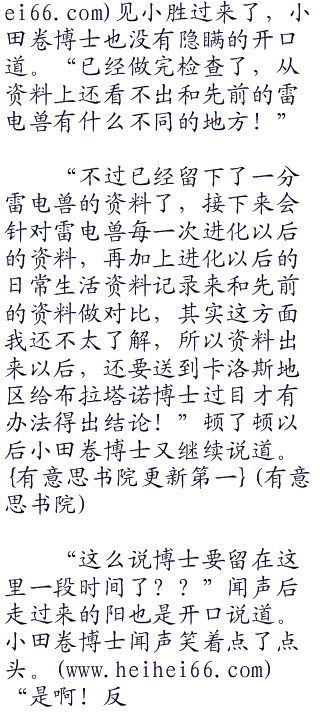 ei66.com)见小胜过来了，小
田卷博士也没有隐瞒的开口
道。“已经做完检查了，从
资料上还看不出和先前的雷
电兽有什么不同的地方！”
“不过已经留下了一分
雷电兽的资料了，接下来会
针对雷电兽每一次进化以后
的资料，再加上进化以后的
日常生活资料记录来和先前
的资料做对比，其实这方面
我还不太了解，所以资料出
来以后，还要送到卡洛斯地
区给布拉塔诺博士过目才有
办法得出结论！”顿了顿以
后小田卷博士又继续说道。
{有意思书院更新第一}(有意
思书院)
“这么说博士要留在这
里一段时间了？？”闻声后
走过来的阳也是开口说道。
小田卷博士闻声笑着点了点
头。(www.heihei66.com)
“是啊！反